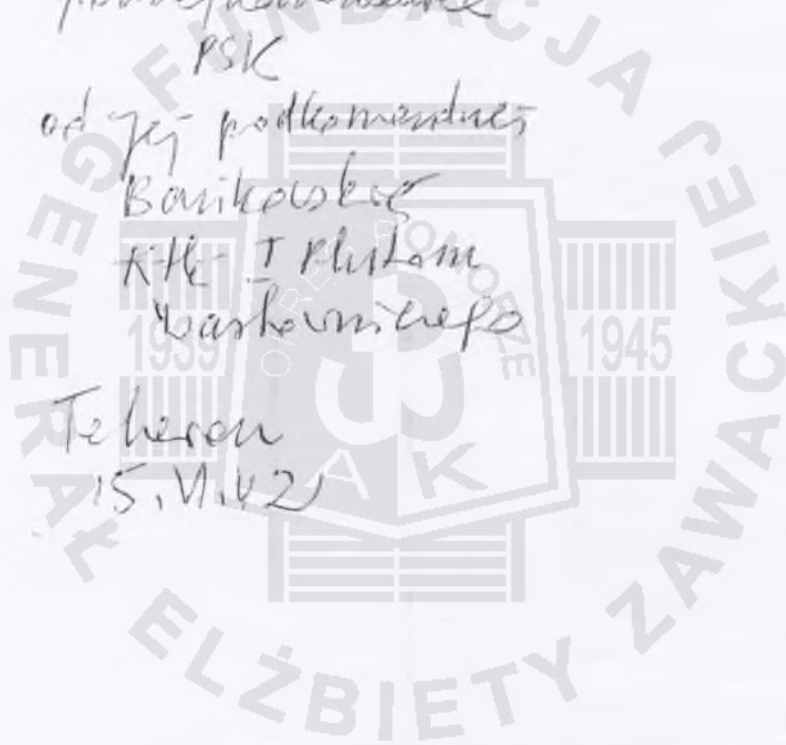 PSK
od jej podkomendnej
K-tki I Plutonu
Wartowniczego
Teheran
15.VI.42
FUNDACJA
GENERAŁ ELŻBIETY ZAWACKIEJ
1939
1945
OKRĘG POMORZE
AK